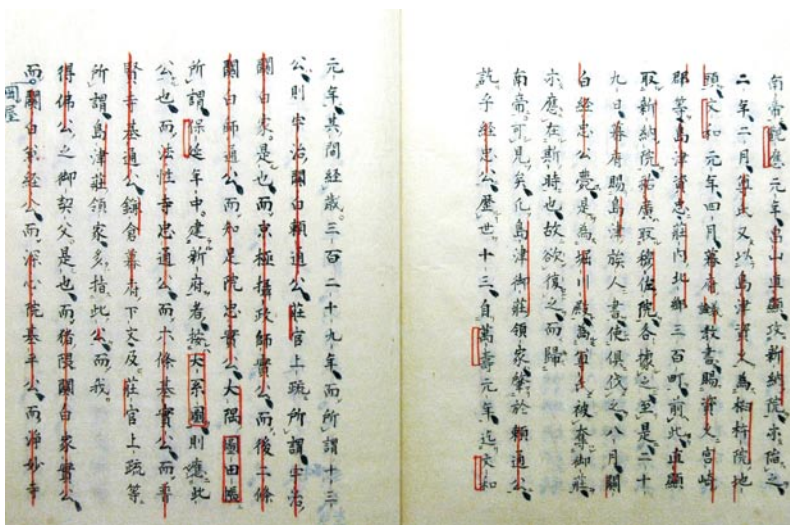 南帝觀應元年畠山直顯攻新納院求陷之
二年二月尊氏又以島津資久爲樺山院地
頭文和元年四月幕府教書賜資久宮崎
郡等島津資忠莊内北鄕三百町前此直顯
取新納院祐廣取穆佐院各據之至是二十
九日幕府賜島津族人書使俱伐之八月關
白經忠公薨是爲堀川殿爲尊氏被奪御莊
應在斯時也故欲復之而歸
南帝可見矣凡島津御莊領家肇於賴通公
訖乎經忠公歷世十三自萬壽元年迄文和
元年其間經歲三百二十九年而所謂十三
公則宇治關白賴通公莊官上疏所謂宇治
關白家是也而京極攝政師實公而後二條
關白師通公而知足院忠實公大隅圖田帳
所謂保延年中建新府者按大系圖則應此
公也而法性寺忠通公而六條基實公而普
賢寺基通公鎌倉幕府下文及莊官上疏等
所謂島津莊領家多指此公而我
得佛公之御契父是也而猪隈關白家實公
而岡屋關白兼經公而深心院基平公而淨妙寺